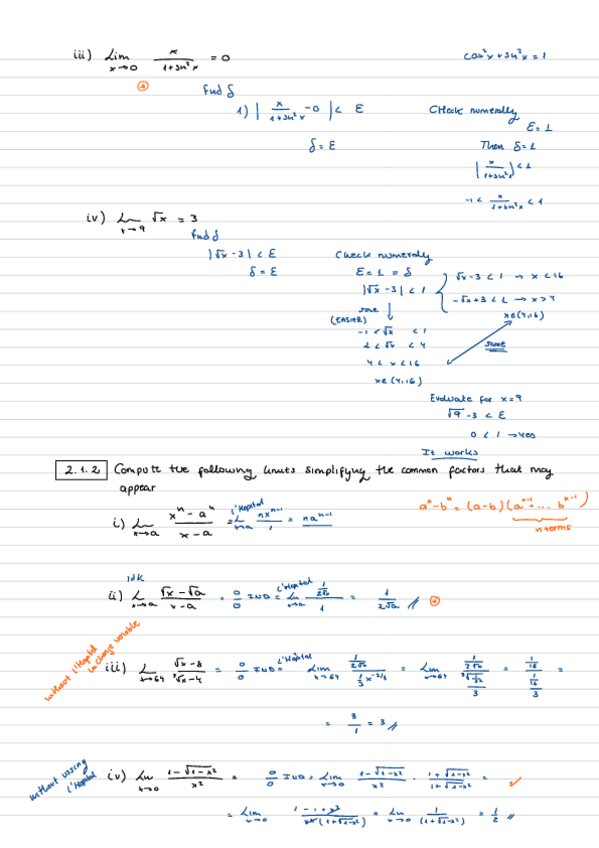 iii) Lim x→0 x/(1+sin²x) = 0
cos²x + sin²x = 1
Find δ
1) | x/(1+sin²x) - 0 | < ε
δ = ε
Check numerally
ε = 1
Then δ = 1
| x/(1+sin²x) | < 1
-1 < x/(1+sin²x) < 1
iv) Lim x→9 √x = 3
Find δ
|√x - 3| < ε
δ = ε
Check numerally
ε = 1 = δ
|√x - 3| < 1
√x - 3 < 1 → x < 16
-√x + 3 < 1 → x > 4
x∈(4,16)
(EASIER)
-1 < √x < 1
2 < √x < 4
4 < x < 16
x∈(4,16)
same
Evaluate for x = 9
√9 - 3 < ε
0 < 1 → yes
It works
2.1.2 Compute the following limits simplifying the common factors that may
appear
i) Lim x→a (xⁿ - aⁿ)/(x - a) = L'Hopital Lim x→a nxⁿ⁻¹/1 = naⁿ⁻¹
aⁿ - bⁿ = (a-b)(aⁿ⁻¹ + ... bⁿ⁻¹)
n terms
idk
ii) Lim x→a (√x - √a)/(x - a) = 0/0 IND = L'Hopital Lim x→a (1/(2√x))/1 = 1/(2√a) //
without L'Hopital
change variable
iii) Lim x→64 (√x - 8)/(³√x - 4) = 0/0 IND = L'Hopital Lim x→64 (1/(2√x))/(1/3 x^(-2/3)) = Lim x→64 = =
= 3/1 = 3 //
without using
L'Hopital
iv) Lim x→0 (1 - √(1-x²))/x² = 0/0 IND = Lim x→0 (1 - √(1-x²))/x² · (1 + √(1-x²))/(1 + √(1-x²)) =
= Lim x→0 (1 - 1 + x²)/(x²(1 + √(1-x²))) = Lim x→0 1/(1 + √(1-x²)) = 1/2 //